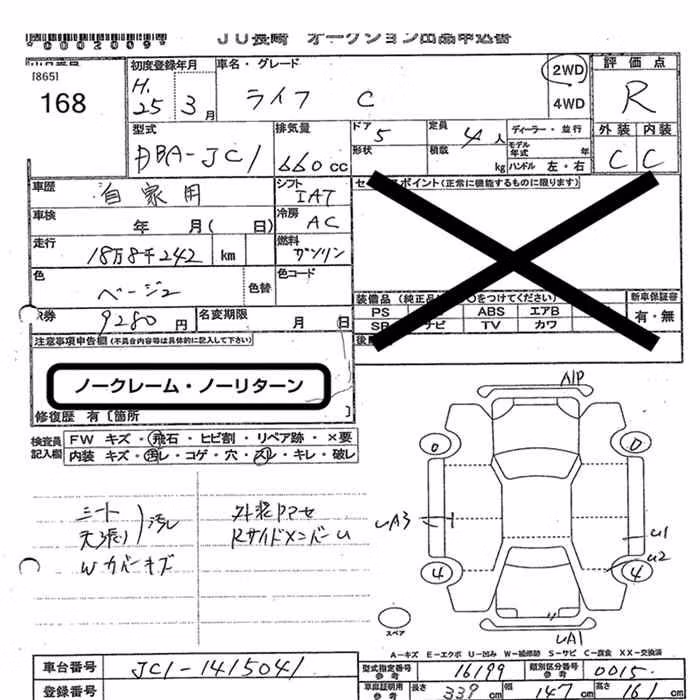 *0002009*
JU長崎 オークション出品申込書
[865]
168
初度登録年月
H.
25 3月
車名・グレード
ライフ C
2WD
4WD
評価点
R
外装 内装
C C
型式
DBA-JC1
排気量
660cc
ドア
5
定員
4人
形状
積数
kg
ディーラー・並行
モデル年式 年
ハンドル 左・右
車歴
自家用
シフト
IAT
車検
年 月( 日)
冷房
AC
走行
18万8千242 km
燃料
ガソリン
色
ベージュ
色替
色コード
ポイント(正常に機能するものに限ります)
装備品(純正品 ○をつけてください)
新車保証書
PS ABS エアB
有・無
SR ナビ TV カワ
R券
9280円
名変期限
月 日
注意事項申告欄(不具合内容等は具体的に記入して下さい)
ノークレーム・ノーリターン
修復歴 有〔箇所 〕
検査員記入欄
FW キズ・飛石・ヒビ割・リペア跡・×要
内装 キズ・汚レ・コゲ・穴・スレ・キレ・破レ
シート
天張り
汚レ
Wカバーキズ
外装アセ
RサイドメンバーU
A1P
0 0
UA3
U1
U2
4 4
UA1
スペア
A-キズ E-エクボ U-凹み W-補修跡 S-サビ C-腐食 XX-交換済
車台番号
JC1-1415041
型式指定番号 参考
16199
類別区分番号 参考
0015
登録番号
車庫証明用 参考
長さ 339cm
幅 147cm
高さ 161cm